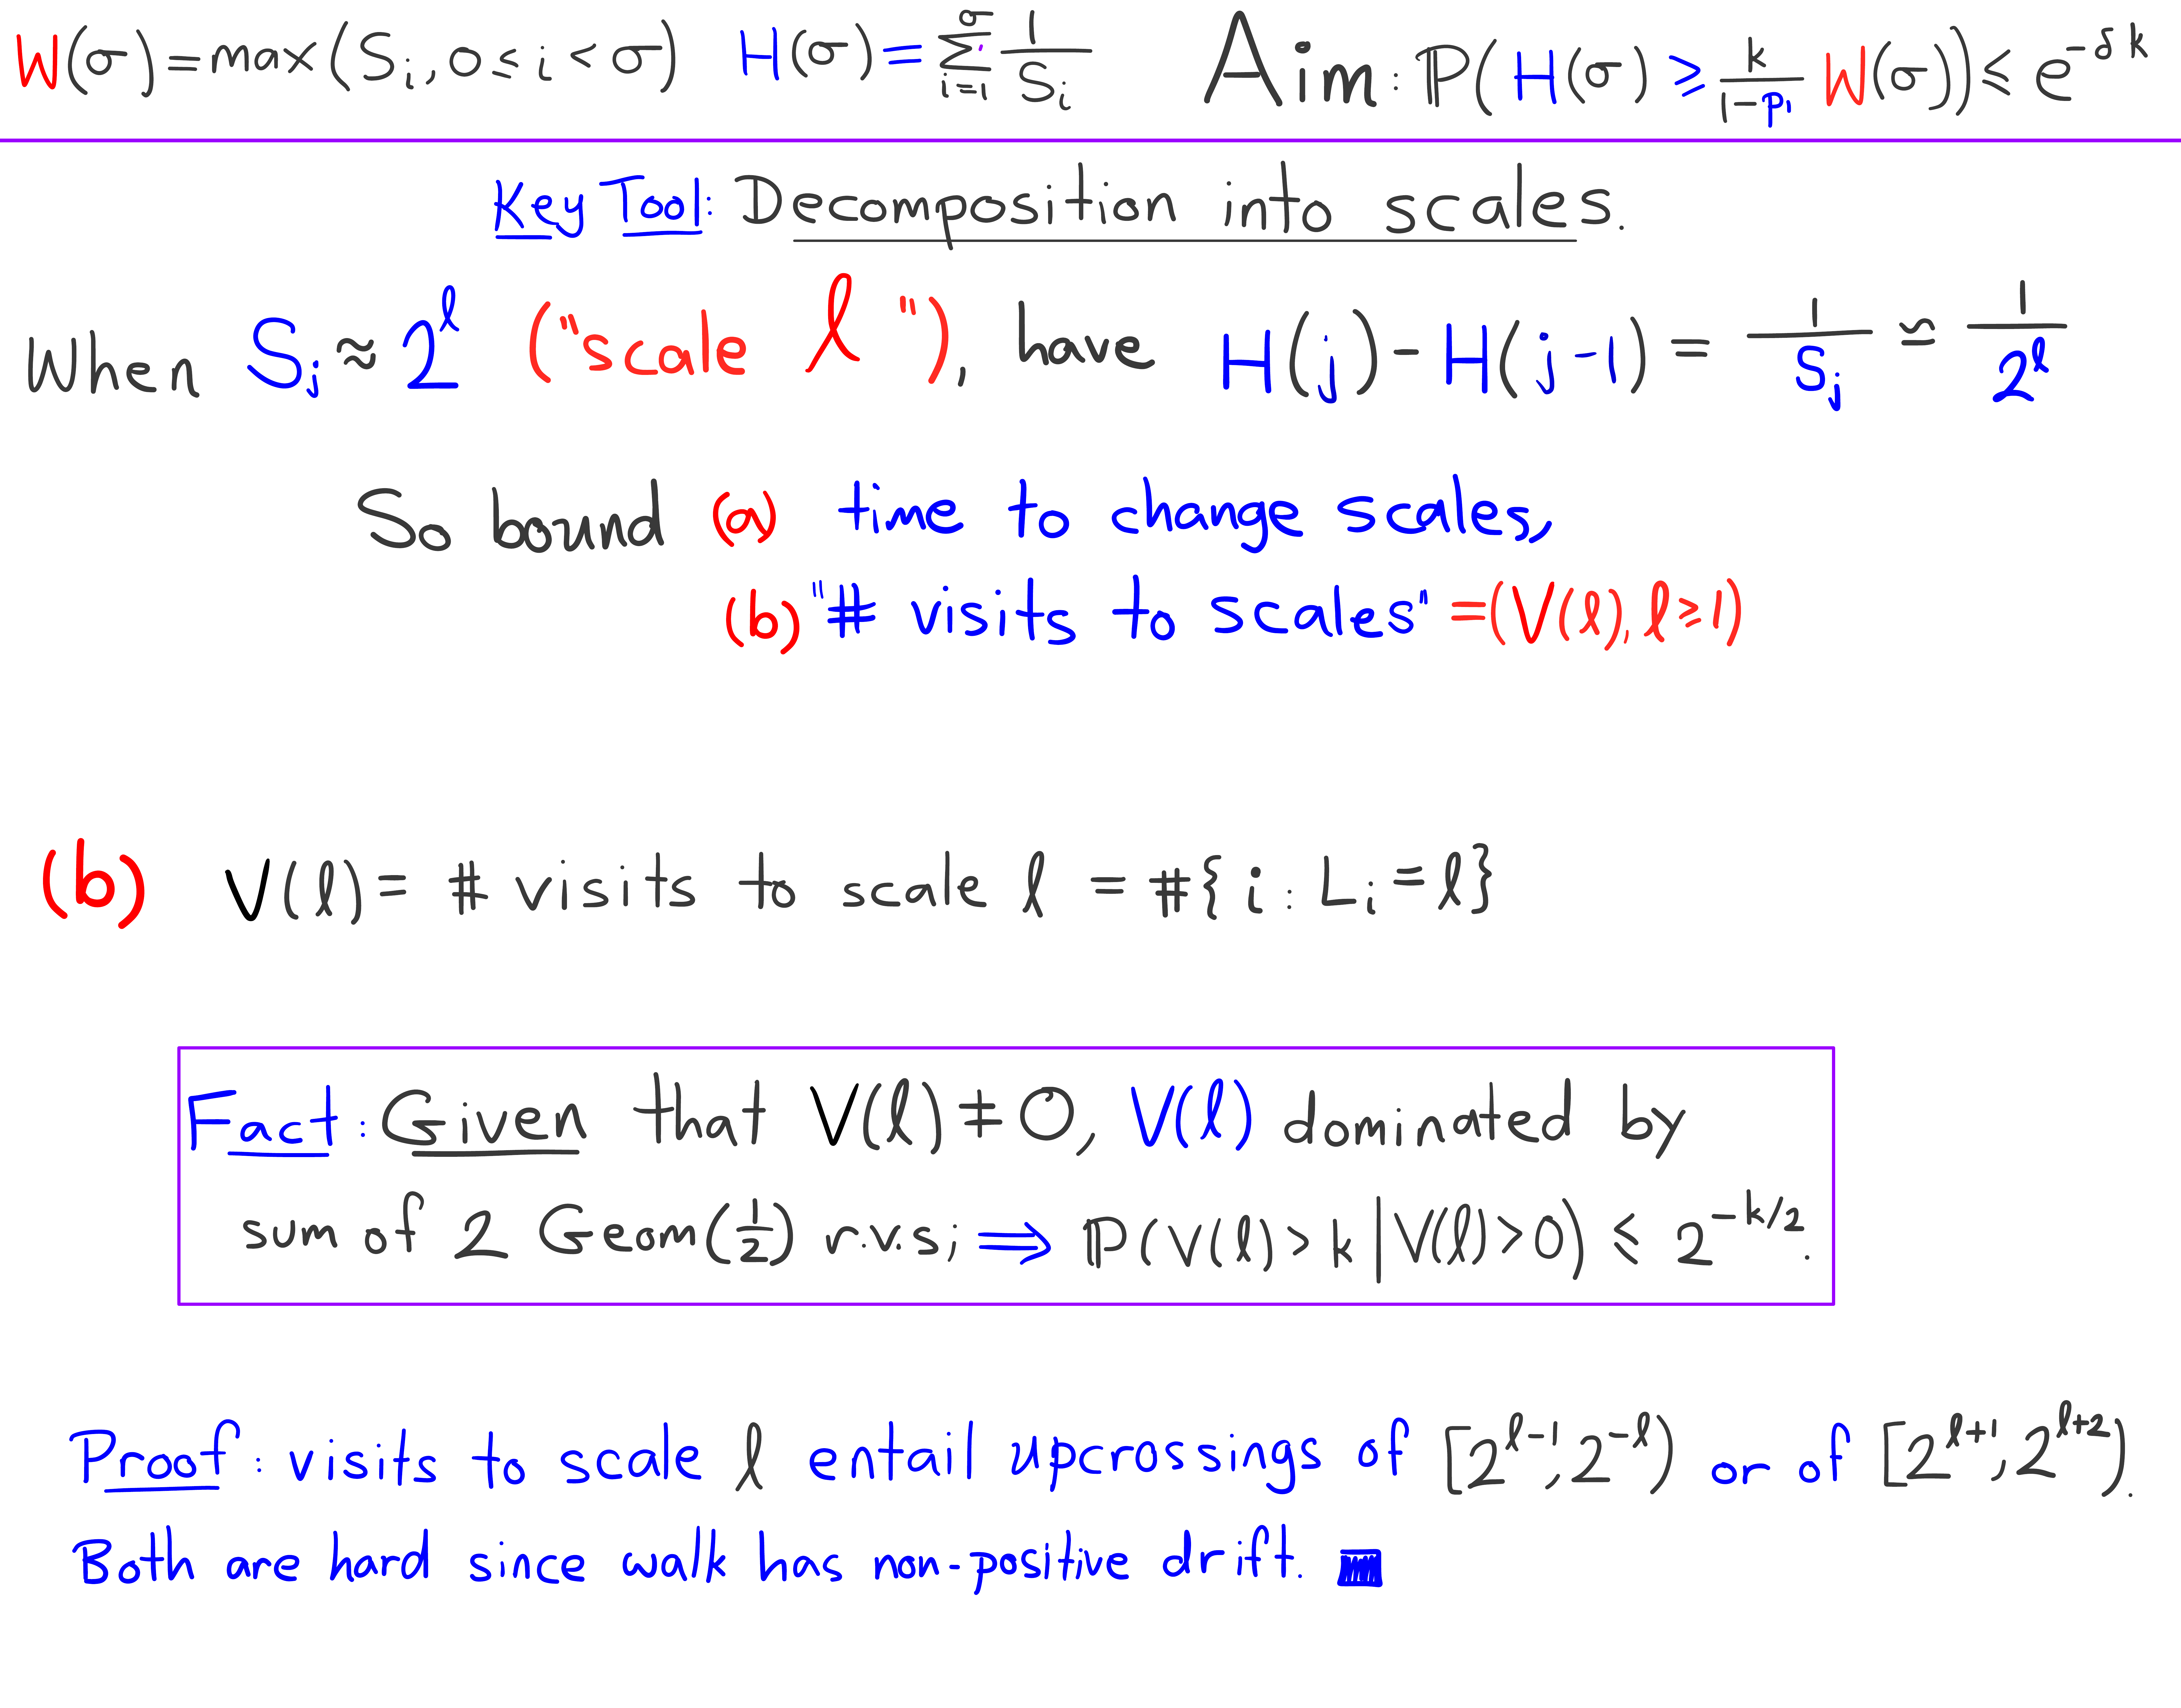 W(σ)=max(S_i, 0≤i<σ) H(σ)=∑_{i=1}^{σ} 1/S_i Aim: P(H(σ) ≥ k/(1-p_1) W(σ)) ≤ e^{-δk}
Key Tool: Decomposition into scales.
When S_j ≈ 2^ℓ ("scale ℓ"), have H(j)-H(j-1) = 1/S_j ≈ 1/2^ℓ
So bound (a) time to change scales,
(b) "# visits to scales" = (V(ℓ), ℓ≥1)
(b) V(ℓ) = # visits to scale ℓ = #{i: L_i = ℓ}
Fact: Given that V(ℓ) ≠ 0, V(ℓ) dominated by
sum of 2 Geom(1/2) r.v.s; ⇒ P(V(ℓ)>k | V(ℓ)>0) ≤ 2^{-k/2}.
Proof: visits to scale ℓ entail upcrossings of [2^{ℓ-1}, 2^{-ℓ}) or of [2^{ℓ+1}, 2^{ℓ+2}).
Both are hard since walk has non-positive drift.